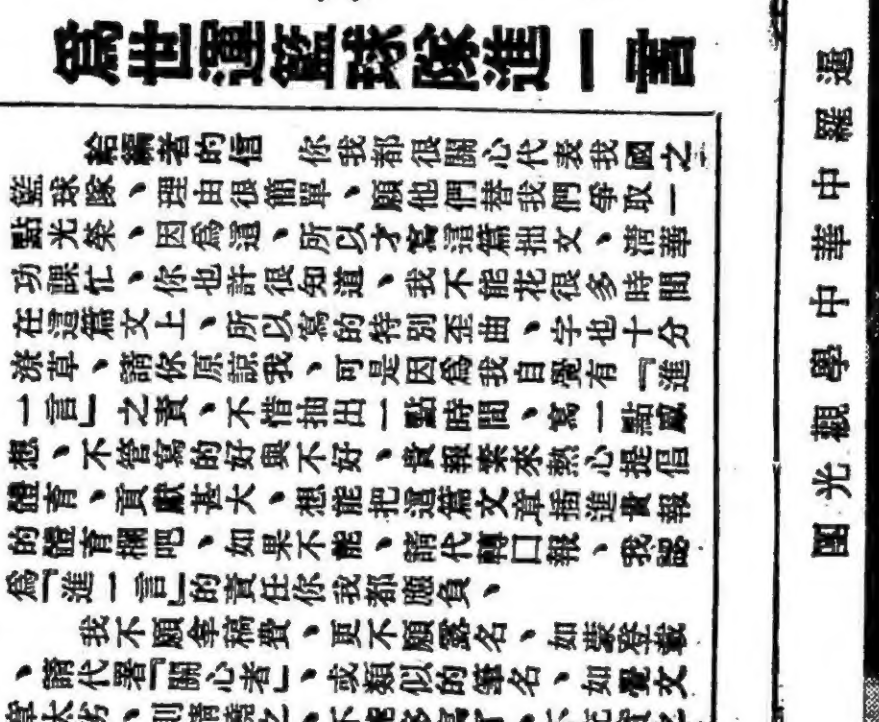 爲世運籃球隊進一言
給編者的信 你我都很關心代表我國之
籃球隊、理由很簡單、願他們替我們爭取一
點光榮、因爲這、所以才寫這篇拙文、清華
功課忙、你也許很知道、我不能花很多時間
在這篇文上、所以寫的特別歪曲、字也十分
潦草、請你原諒我、可是因爲我自覺有『進
一言』之責、不惜抽出一點時間、寫一點感
想、不管寫的好與不好、貴報素來熱心提倡
體育、貢獻甚大、想能把這篇文章插進貴報
的體育欄吧、如果不能、請代轉口報、我認
爲『進一言』的責任你我都應負、
我不願拿稿費、更不願露名、如蒙登載
、請代署『關心者』、或類似的筆名、如覺文
章太劣、則請燒之、不能多寫了、
暹羅中華中學觀光團